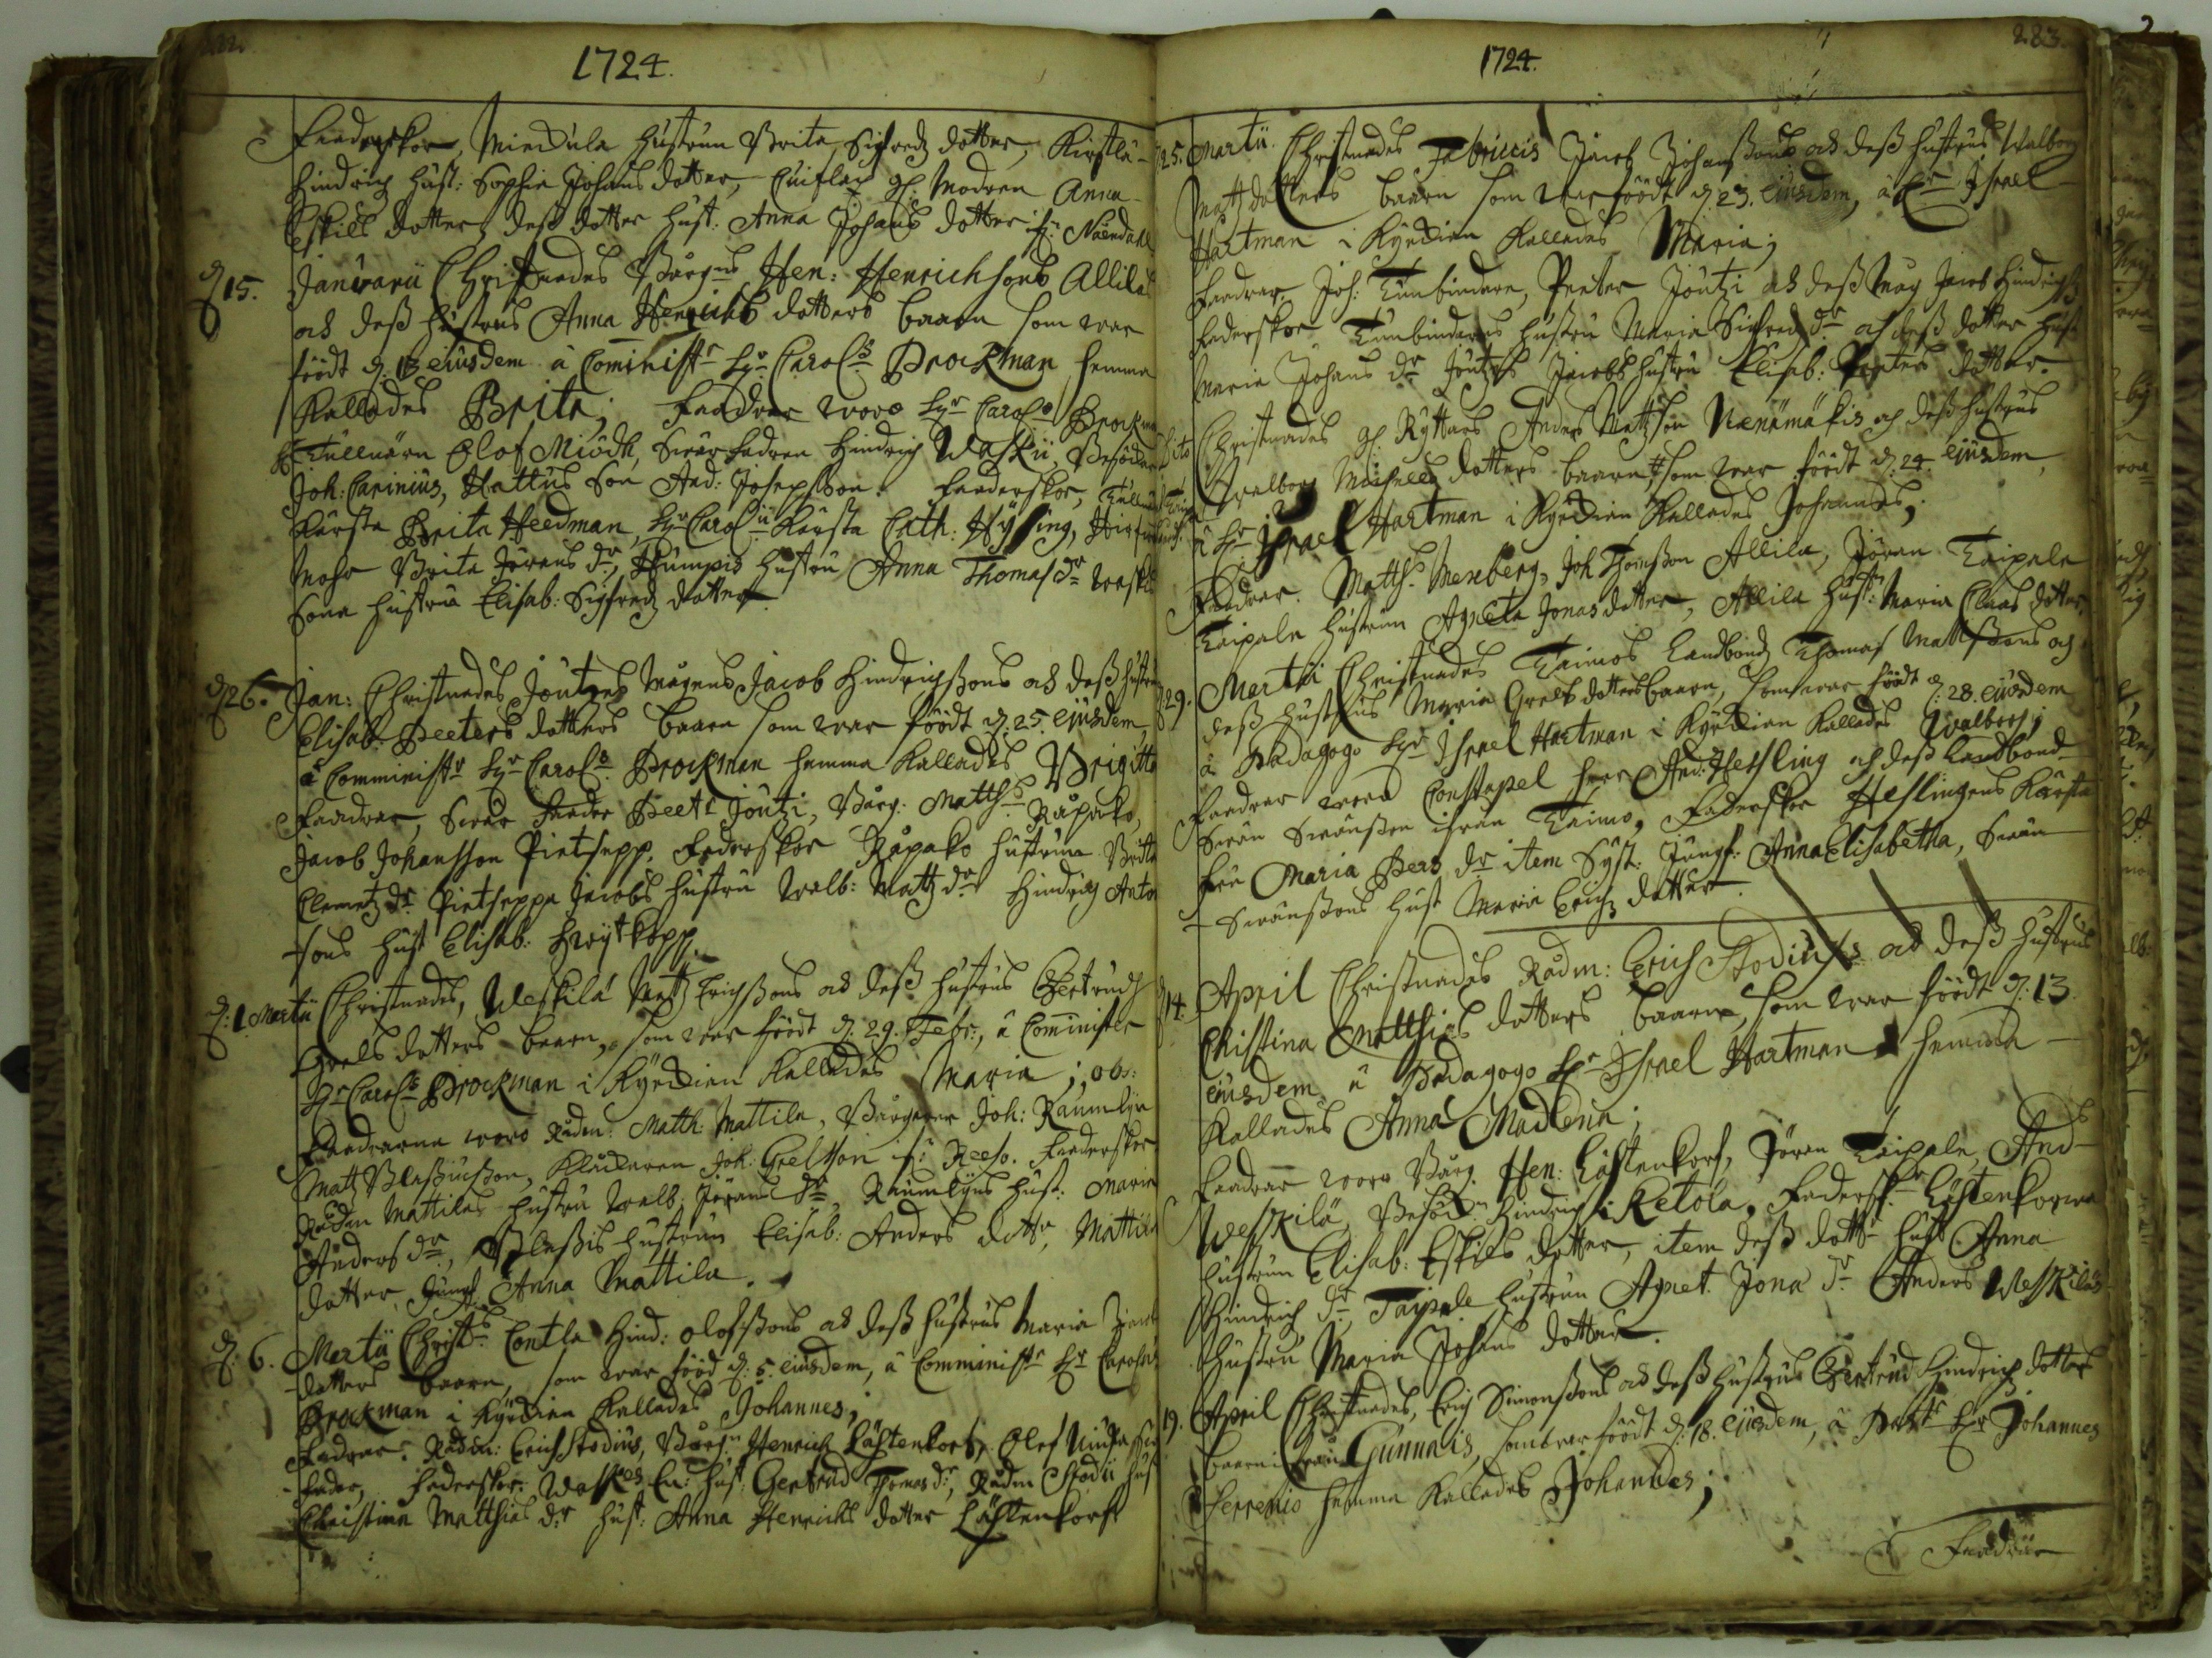 1724.
Faderskor, Mickula hustrun Brita Sigfredz dotter, Kirstlä
Hindrich hust: Sophia Johans dotter, modren Anna
Eskils dotter dess dotter hust: Anna Johans dotter Nåendahl
d. 15. Januarii Christnades Börg:ns Hen: Henrichsons Allilas
och dess hustrus Anna Henrichs dotters baarn som war
födt d. 13 ejusdem à Comminist:r H:r Carol:s Brockman hemma
Kallades Brita; Faadrar woro H:r Carol:s Brockman
Tullnärn Olof Miödh, Swärfadren Hindrich Waskii, Besökar
Joh: Carinius, Hattus Son And: Josepsson. Faderskor,
Kärsta Brita Heedman, H:r Carol:ii Kärsta Cath: Hysing,
Mohr Brita Jörans d:r, Humpis hustru Anna Thomas d:r
Sons hustru Elisab: Sigfredz dotter.
d. 26. Jan: Christnades Joutzes Mågens Jacob Hindrichssons och dess hustrus
Elisab: Peeters dotters baarn som war födt d. 25. ejusdem,
à Comminist:r H:r Carol:s Brockman hemma Kallades Brigitta
Faadrar, Swär Fader Peet:r Joutzi, Börg: Matth:s Råpako,
Jacob Johansson Pietsepp. Faderskor Råpako hustrun Britta
Clemetz d:r Pietseppe Jacobs hustru Walb: Matz d:r Hindrich
sons hust Elisab: Hwijtkopp.
d: 1. Martii Christnades, Weskilä Matz Erichssons och dess hustrus Gertrud
Grels dotters baarn, som war födt d. 29. Febr:, à Comminister
H:r Carol:s Brockman i Kyrckian Kallades Maria; obs:
Faadrarna woro Rådm: Matth: Mattila, Börgaren Joh: Raumlin
Matz Blasiusson, Klåckaren Joh: Grelsson Reeso. Faderskor
Rådm Mattilas hustru Walb: Jörans d:r, Raumlijns hust: Maria
Anders d:r, Blasis hustrun Elisab: Anders dott:r, Mattila
dotter Jungf: Anna Mattila.
d. 6. Martii Christ:s Contla Hind: Olofssons och dess hustrus Maria
dotters baarn, som war född d. 5 ejusdem, à Comminist:r H:r Carol:s
Brockman i Kyrckian Kallades Johannes;
Fadrar. Rådm: Erich Stodius, Börg:n Henrich Lästenkorf, Olof
Fader, Faderskor: Hust: Gertrud Thomas d:r, Rådm Stodii hust
Christina Matthias d:r hust: Anna Henrichs dotter Lästenkorf
1724.
283.
25. Martii Christnades Fabriccis Jacob Johanssons och dess hustrus Walborg
Matz dotters baarn som war födt d. 23. ejusdem, à H:r Israel
Hartman i Kyrckian Kallades Maria;
Faadrar. Joh: Tunbindare, Peeter Joutzi och dess Måg Jacob Hindrichs
Faderskor. Tunbindares hustru Maria Sigfredz d:r och dess dotter hust
Maria Johans d:r Joutzis Jacobs hustru Elisab: Peeters dotter.
Dito Christnades Ryttars Anders Mattzson Nenämäkis och dess hustrus
Walborg Michels dotters baarn som war födt d. 24. ejusdem,
à H:r Israel Hartman i Kyrckian Kallades Johannes;
Faadrar. Matth: Wexberg, Joh Thomsson Allila, Jöran Taipale
Taipale hustrun Agneta Jonas dotter, Allila hust: Maria Claes dotter.
29. Martii Christnades Taimos Landbondz Thomas Mattssons och
dess hustrus Maria Grels dotters baarn, som war födt d: 28. ejusdem
à Pædagogo H:r Israel Hartman i Kyrckian Kallades Walborg;
Faadrar woro Constapel herr And: Hesling och dess Landbond
Swän Swänsson ifrån Taimo, Faderskor Heslingens Kärsta
Fru Maria Pers d:r item Syst: Jungf: Anna Elisabetha, Swän
Swänssons hust Maria Erichz dotter.
14. April Christnades Rådm: Erich Stodius och dess hustrus
Christina Matthias dotters baarn, som war födt d. 13.
ejusdem à Pædagogo H:r Israel Hartman hemma
Kallades Anna Madlena;
Faadrar woro Börg. Hen: Lästenkorf, Jöran Taipale, And:s
Weskilä, Besök:r Hindrich Ketola. Fadersk:r Lästenkorwa
hustrun Elisab: Eskils dotter, item dess dott:r hust Anna
Hindrich d:r, Taipale hustrun Agnet. Jona d:r Anders Weskiläs
hustru Maria Johans dotter.
19. April Christnades, Erich Simonssons och dess hustrus Gertrud Hindrich dotters
baarn ifrån Gunnais, som war födt d. 18. ejusdem, à Past:r H:r Johannes
Serrenio hemma Kallades Johannes;
Faadrar